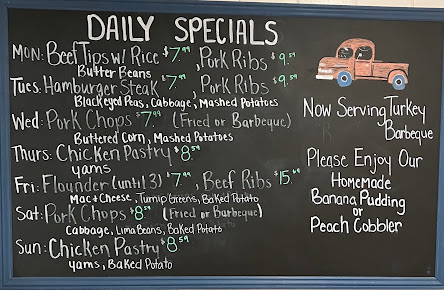 DAILY SPECIALS
MON: Beef Tips w/ Rice $7.99, Pork Ribs $9.59
Butter Beans
TUES: Hamburger Steak $7.99 Pork Ribs $9.59
Blackeyed Peas, Cabbage, Mashed Potatoes
Wed: Pork Chops $7.99 (Fried or Barbeque)
Buttered Corn, Mashed Potatoes
Thurs: Chicken Pastry $8.59
yams
Fri: Flounder (until 3) $7.99, Beef Ribs
Mac & Cheese, Turnip Greens, Baked Potato
Sat: Pork Chops $8.59 (Fried or Barbeque)
Cabbage, Lima Beans, Baked Potato
Sun: Chicken Pastry $8.59
yams, Baked Potato
Now Serving Turkey
Barbeque
Please Enjoy Our
Homemade
Banana Pudding
or
Peach Cobbler